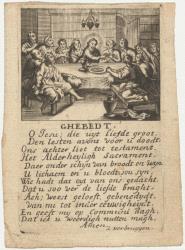 GHEBEDT.
O Jesu, die uyt liefde groot,
Den lesten avont voor u doodt,
Ons achter liet tot testament
Het Alderheyligh Sacrament.
Daer onder schijn van broodt en wijn
U lichaem en u bloedt, son syn,
Wie hadt dat oyt van ons gedacht.
Dat u soo ver de liefde bracht.
Ach, weest gelooft, gebenedydt
Van nu tot in der eeuwigheydt
En geeft my op Communi dagh
Dat ick u weerdigh nutten magh.
Amen.